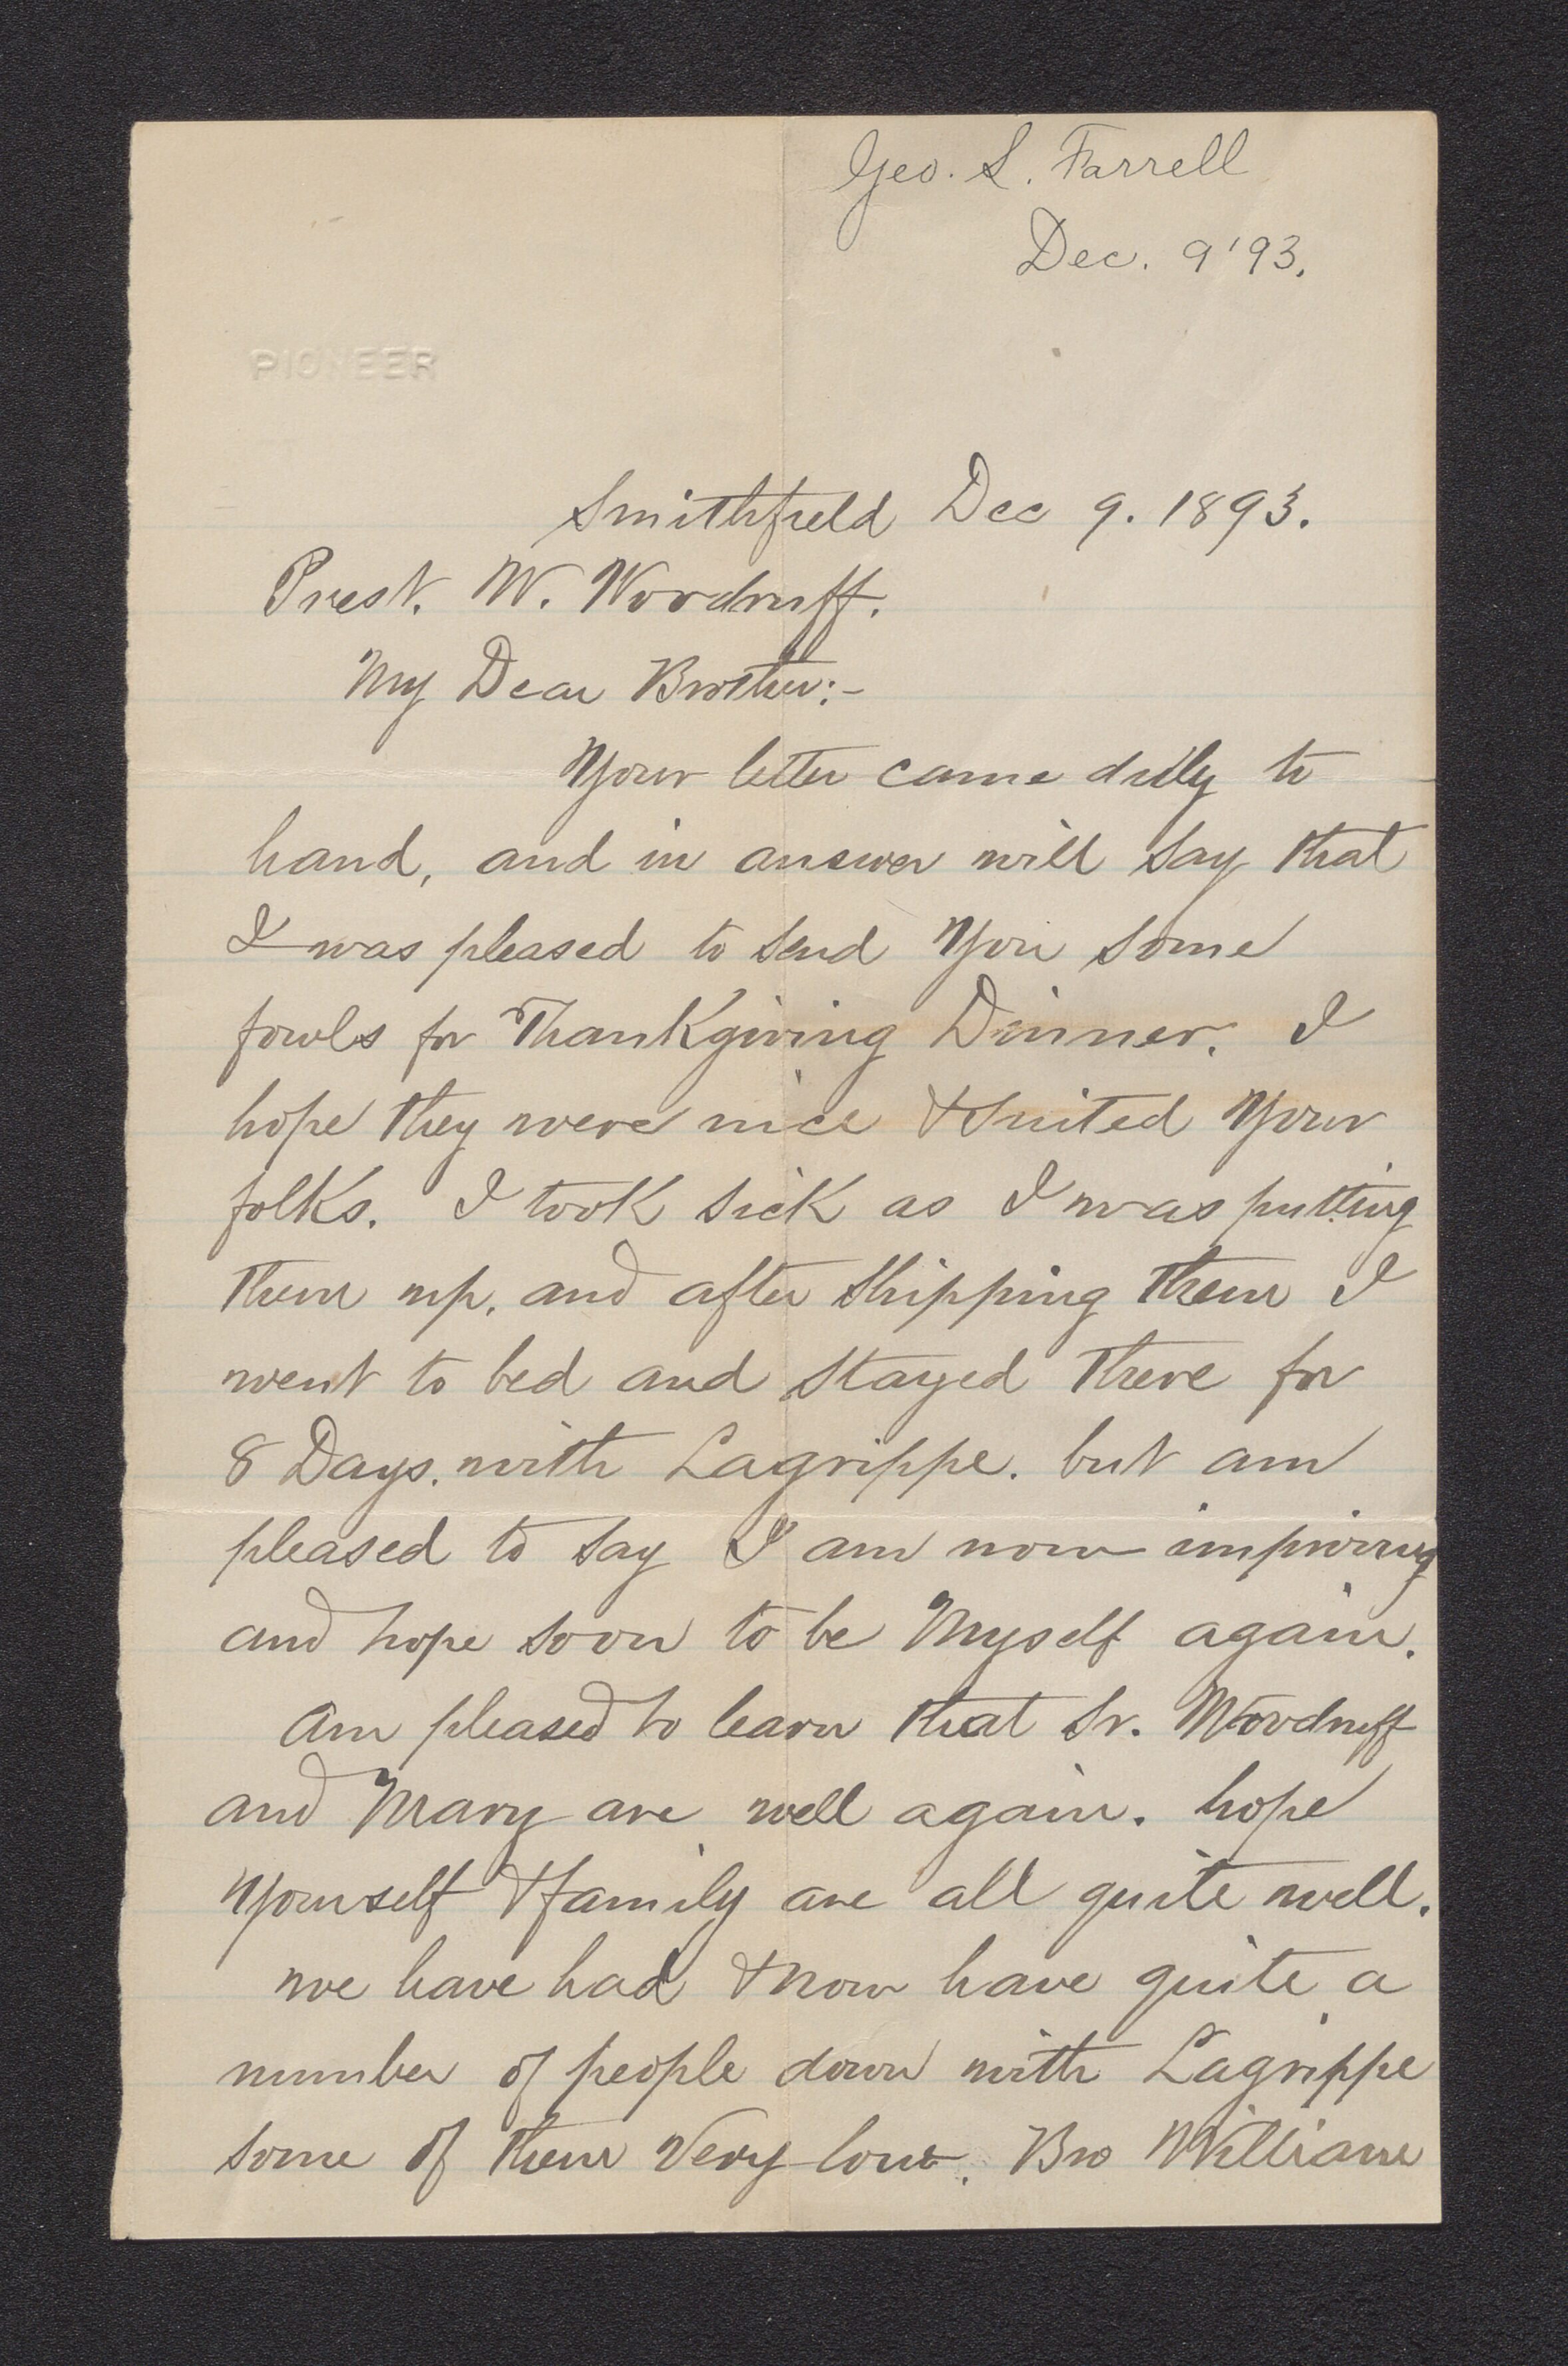 Geo. S. Farrell
Dec. 9 '93.
PIONEER
Smithfield Dec 9. 1893.
Prest. W. Woodruff.
My Dear Brother:-
Your letter came dully to
hand, and in answer will say that
I was pleased to send You some
fowls for Thankgiving Dinner. I
hope they were nice & suited Your
folks. I took sick as I was putting
them up, and after shipping them I
went to bed and stayed there for
8 Days. with Lagrippe. but am
pleased to say I am now improving
and hope soon to be Myself again.
Am pleased to learn that Sr. Woodruff
and Mary are well again. hope
Yourself & family are all quite well.
we have had & now have quite a
number of people down with Lagrippe
some of them Very low. Bro William